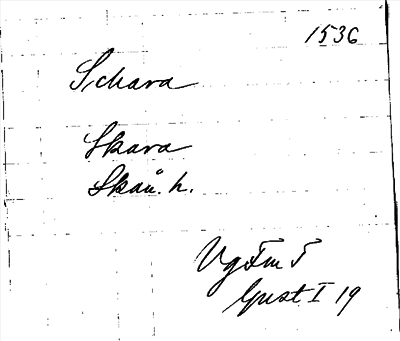 1536
Schara
Skara
Skån. h.
Vg Fm 5
Gust. I 19